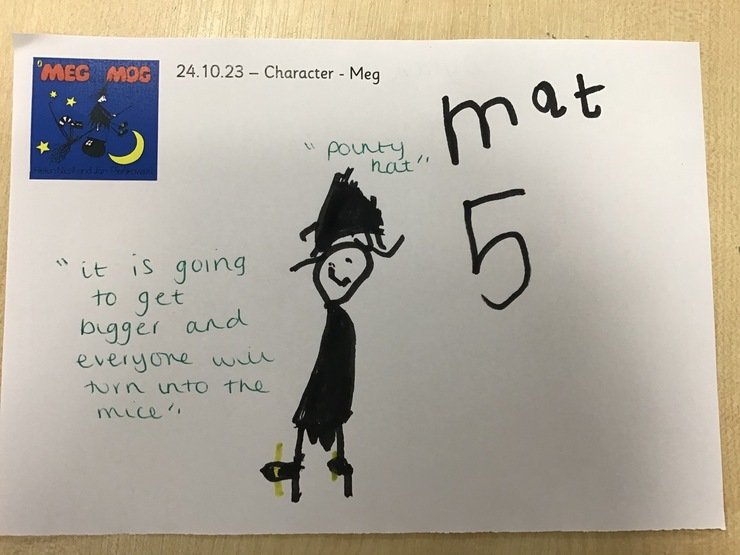 MEG MOG
24.10.23 – Character - Meg
mat
5
"pointy
hat"
"it is going
to get
bigger and
everyone will
turn into the
mice".